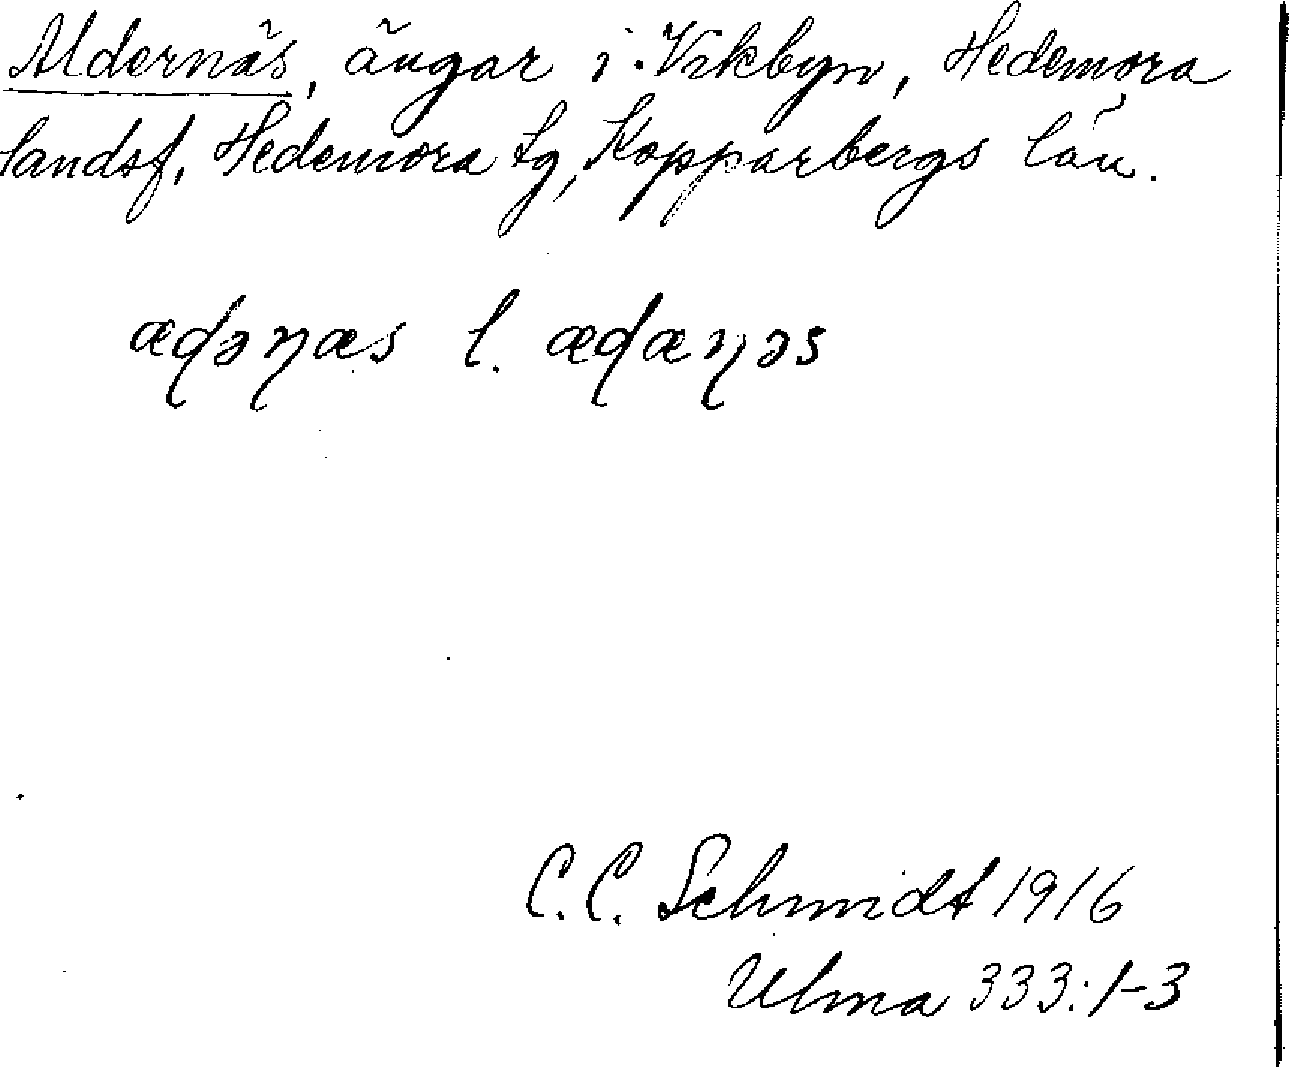 Aldernäs, ängar i Vikbyn, Hedemora
landsf, Hedemora tg, Kopparbergs län.
æɖəɳæs l. æɖæɳəs
C. C. Schmidt 1916
Ulma 333:1-3